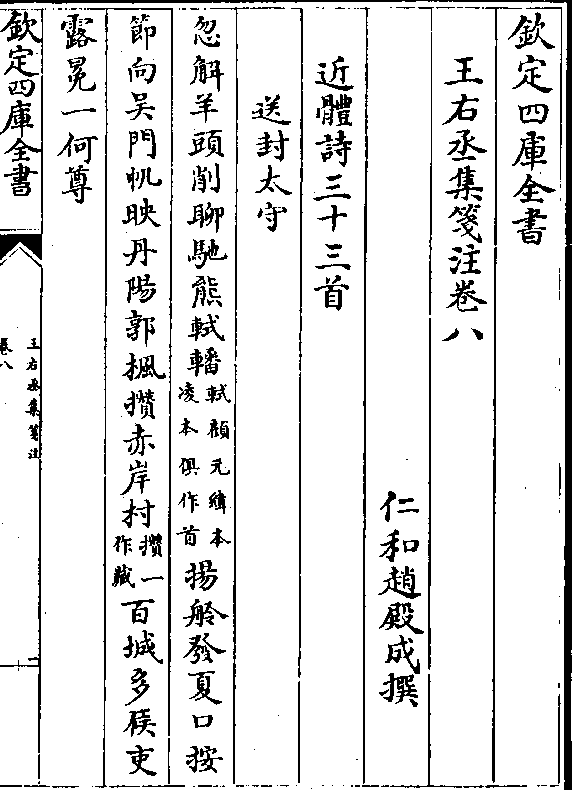 欽定四庫全書
王右丞集箋注卷八
仁和趙殿成撰
近體詩三十三首
送封太守
忽解羊頭削聊馳熊軾轓軾顧元緯本凌本俱作首揚舲發夏口按
節向吳門帆映丹陽郭楓攢赤岸村攢一作藏百城多候吏
露冕一何尊
欽定四庫全書
王右丞集箋注
卷八
一